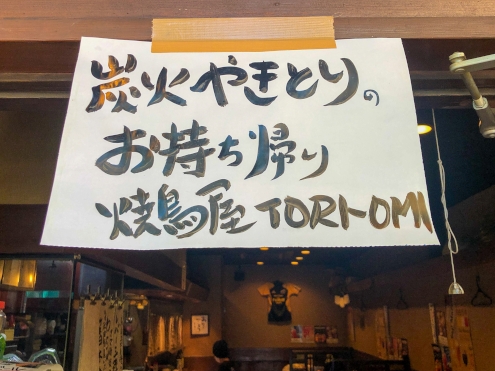 炭火やきとりの
お持ち帰り
焼鳥屋 TORI-OMI